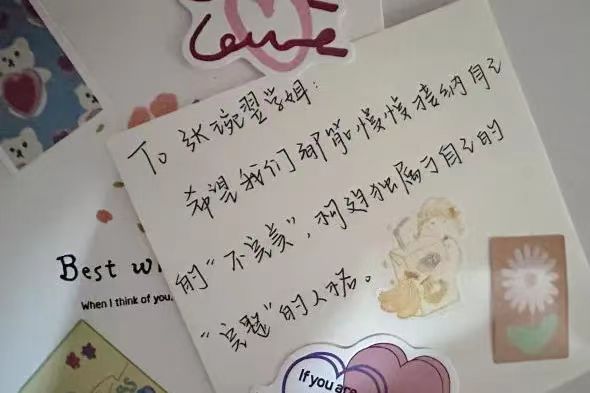 Love
To 张琬翌学姐：
希望我们都能慢慢接纳自己
的“不完美”，构建独属于自己的
“完整”的人格。
Best wi
When I think of you,
If you are